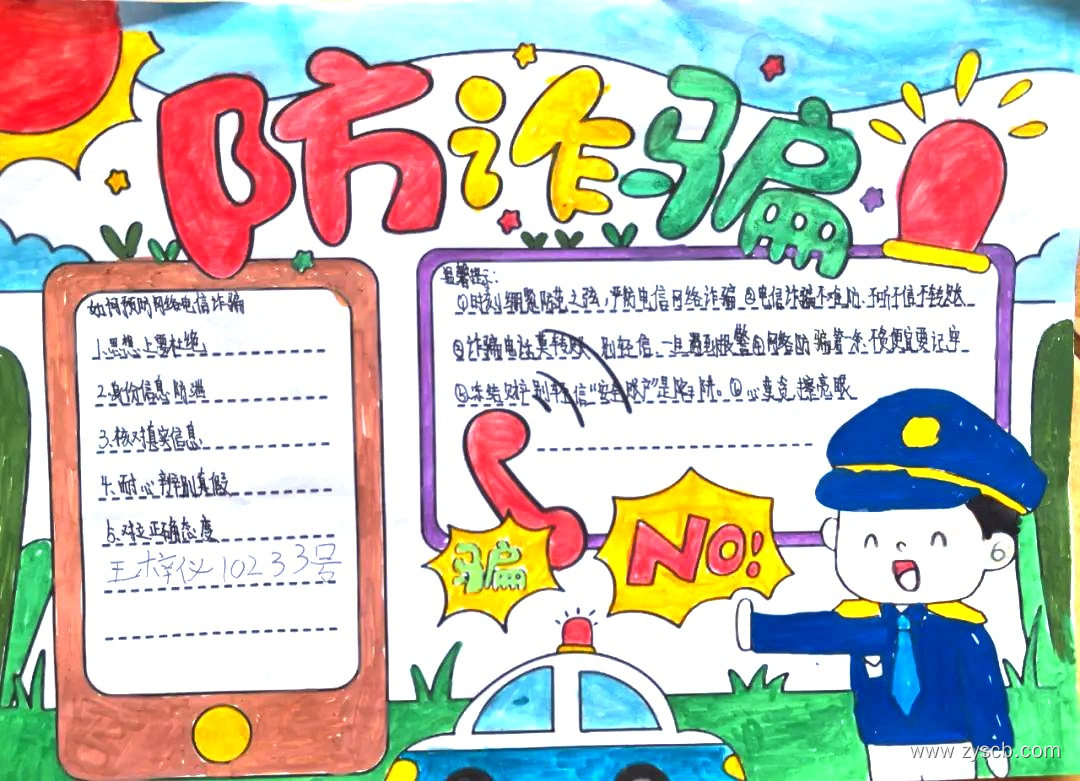 防诈骗
如何预防网络电信诈骗
1.思想上要杜绝
2.身份信息防泄
3.核对真实信息
4.耐心辨别真假
5.对立正确态度
王梓仪 10233号
温馨提示:
①时刻绷紧防范之弦,严防电信网络诈骗 ②电信诈骗不难防、不听不信不转款
③诈骗电话莫转账 别轻信、一旦遇到报警 ④网络防骗第一条、贪便宜要记牢
⑤冻结 别轻信“安全账户”是陷阱。⑥心变亮,擦亮眼
骗
NO!
www.zyscb.com